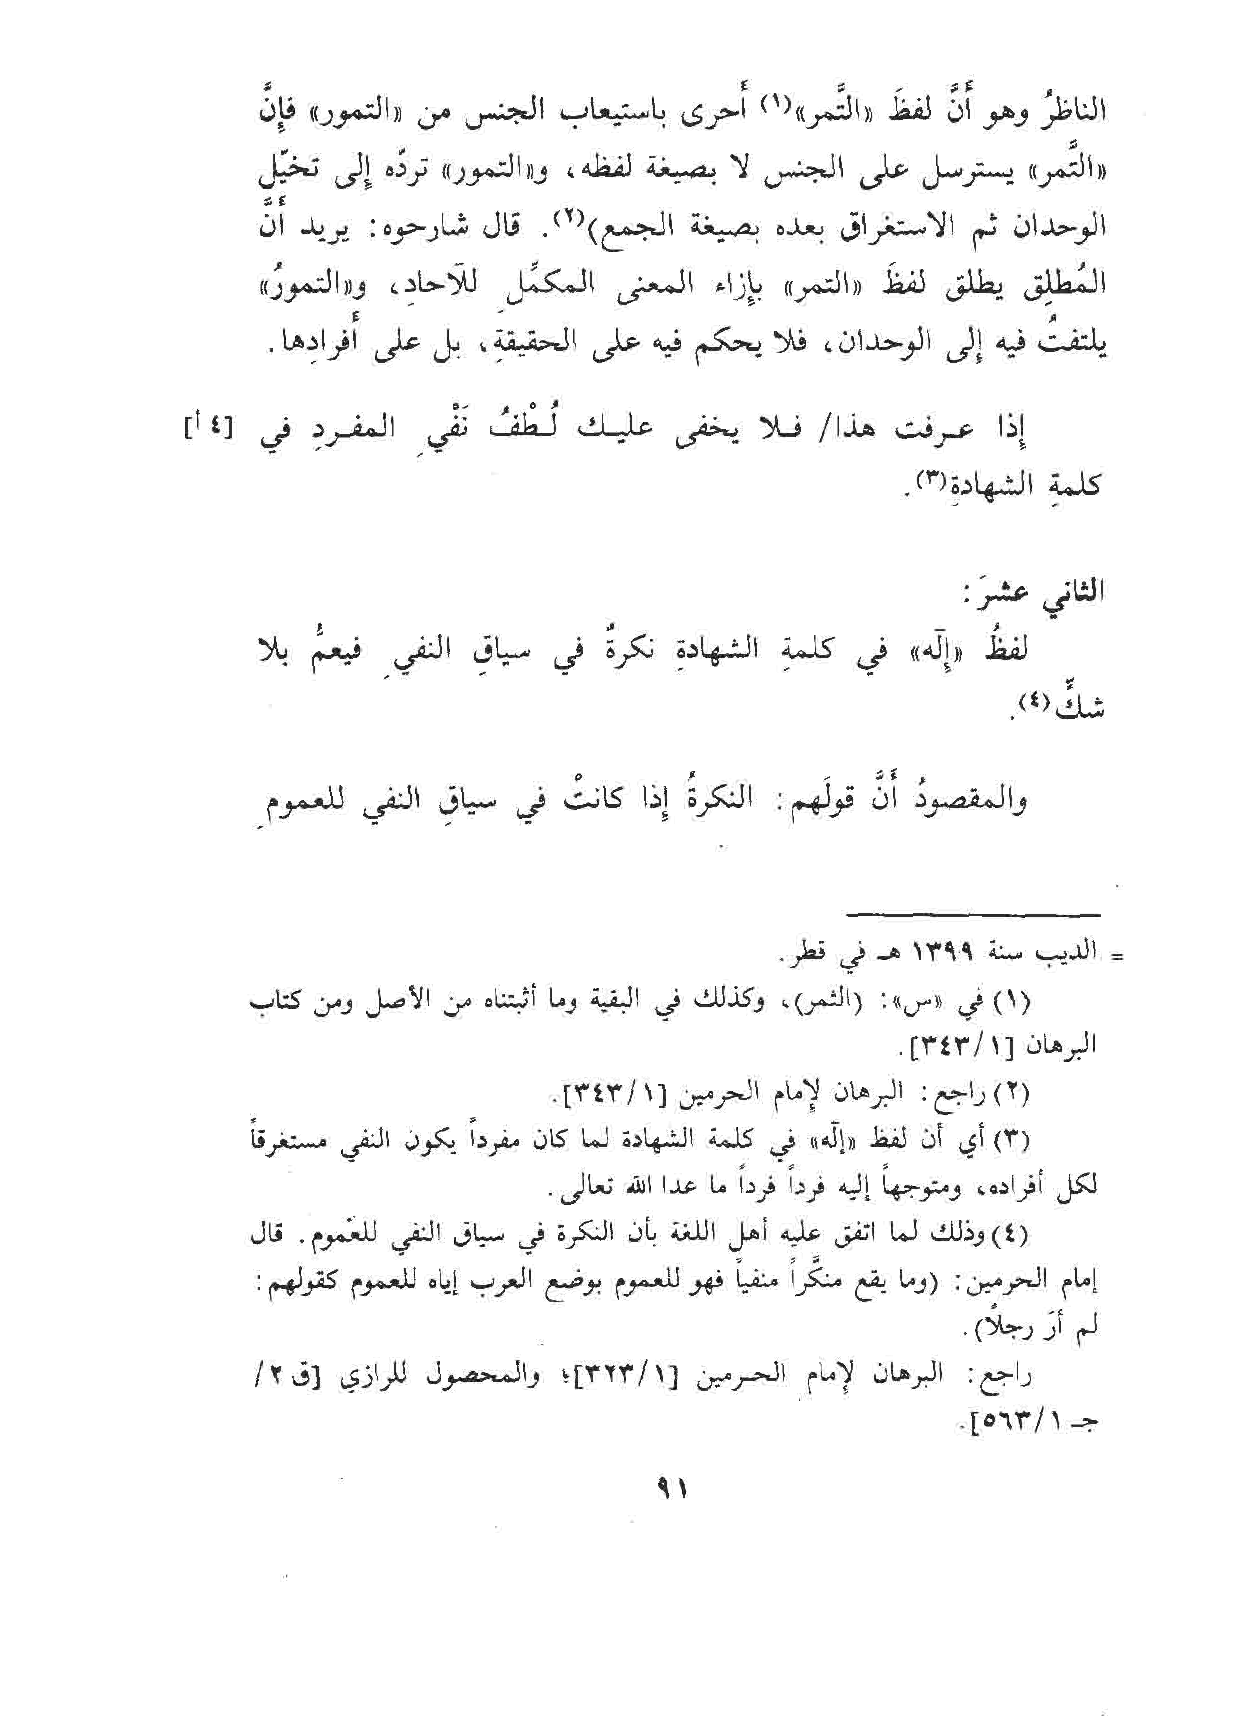 الناظرُ وهو أَنَّ لفظَ «التَّمر»(١) أَحرى باستيعاب الجنس من «التمور» فإِنَّ
«التَّمر» يسترسل على الجنس لا بصيغة لفظه، و«التمور» تردّه إلى تخيّل
الوحدان ثم الاستغراق بعده بصيغة الجمع)(٢). قال شارحوه: يريد أَنَّ
المُطلِق يطلق لفظَ «التمر» بإزاء المعنى المكمِّلِ للآحادِ، و«التمورُ»
يلتفتُ فيه إلى الوحدان، فلا يحكم فيه على الحقيقةِ، بل على أَفرادِها.
إذا عرفت هذا/ فلا يخفى عليك لُطْفُ نَفْيِ المفردِ في [٤ أ]
كلمةِ الشهادةِ(٣).
الثاني عشرَ:
لفظُ «إلَه» في كلمةِ الشهادةِ نكرةٌ في سياقِ النفيِ فيعمُّ بلا
شكٍّ(٤).
والمقصودُ أَنَّ قولَهم: النكرةُ إذا كانتْ في سياقِ النفي للعمومِ
= الديب سنة ١٣٩٩ هـ في قطر.
(١) في «س»: (الثمر)، وكذلك في البقية وما أثبتناه من الأصل ومن كتاب
البرهان [١/ ٣٤٣].
(٢) راجع: البرهان لإمام الحرمين [١/ ٣٤٣].
(٣) أي أن لفظ «إلَه» في كلمة الشهادة لما كان مفرداً يكون النفي مستغرقاً
لكل أفراده، ومتوجهاً إليه فرداً فرداً ما عدا الله تعالى.
(٤) وذلك لما اتفق عليه أهل اللغة بأن النكرة في سياق النفي للعُموم. قال
إمام الحرمين: (وما يقع منكَّراً منفياً فهو للعموم بوضع العرب إياه للعموم كقولهم:
لم أرَ رجلاً).
راجع: البرهان لإمام الحرمين [١/ ٣٢٣]؛ والمحصول للرازي [ق ٢/
جـ ١/ ٥٦٣].
٩١